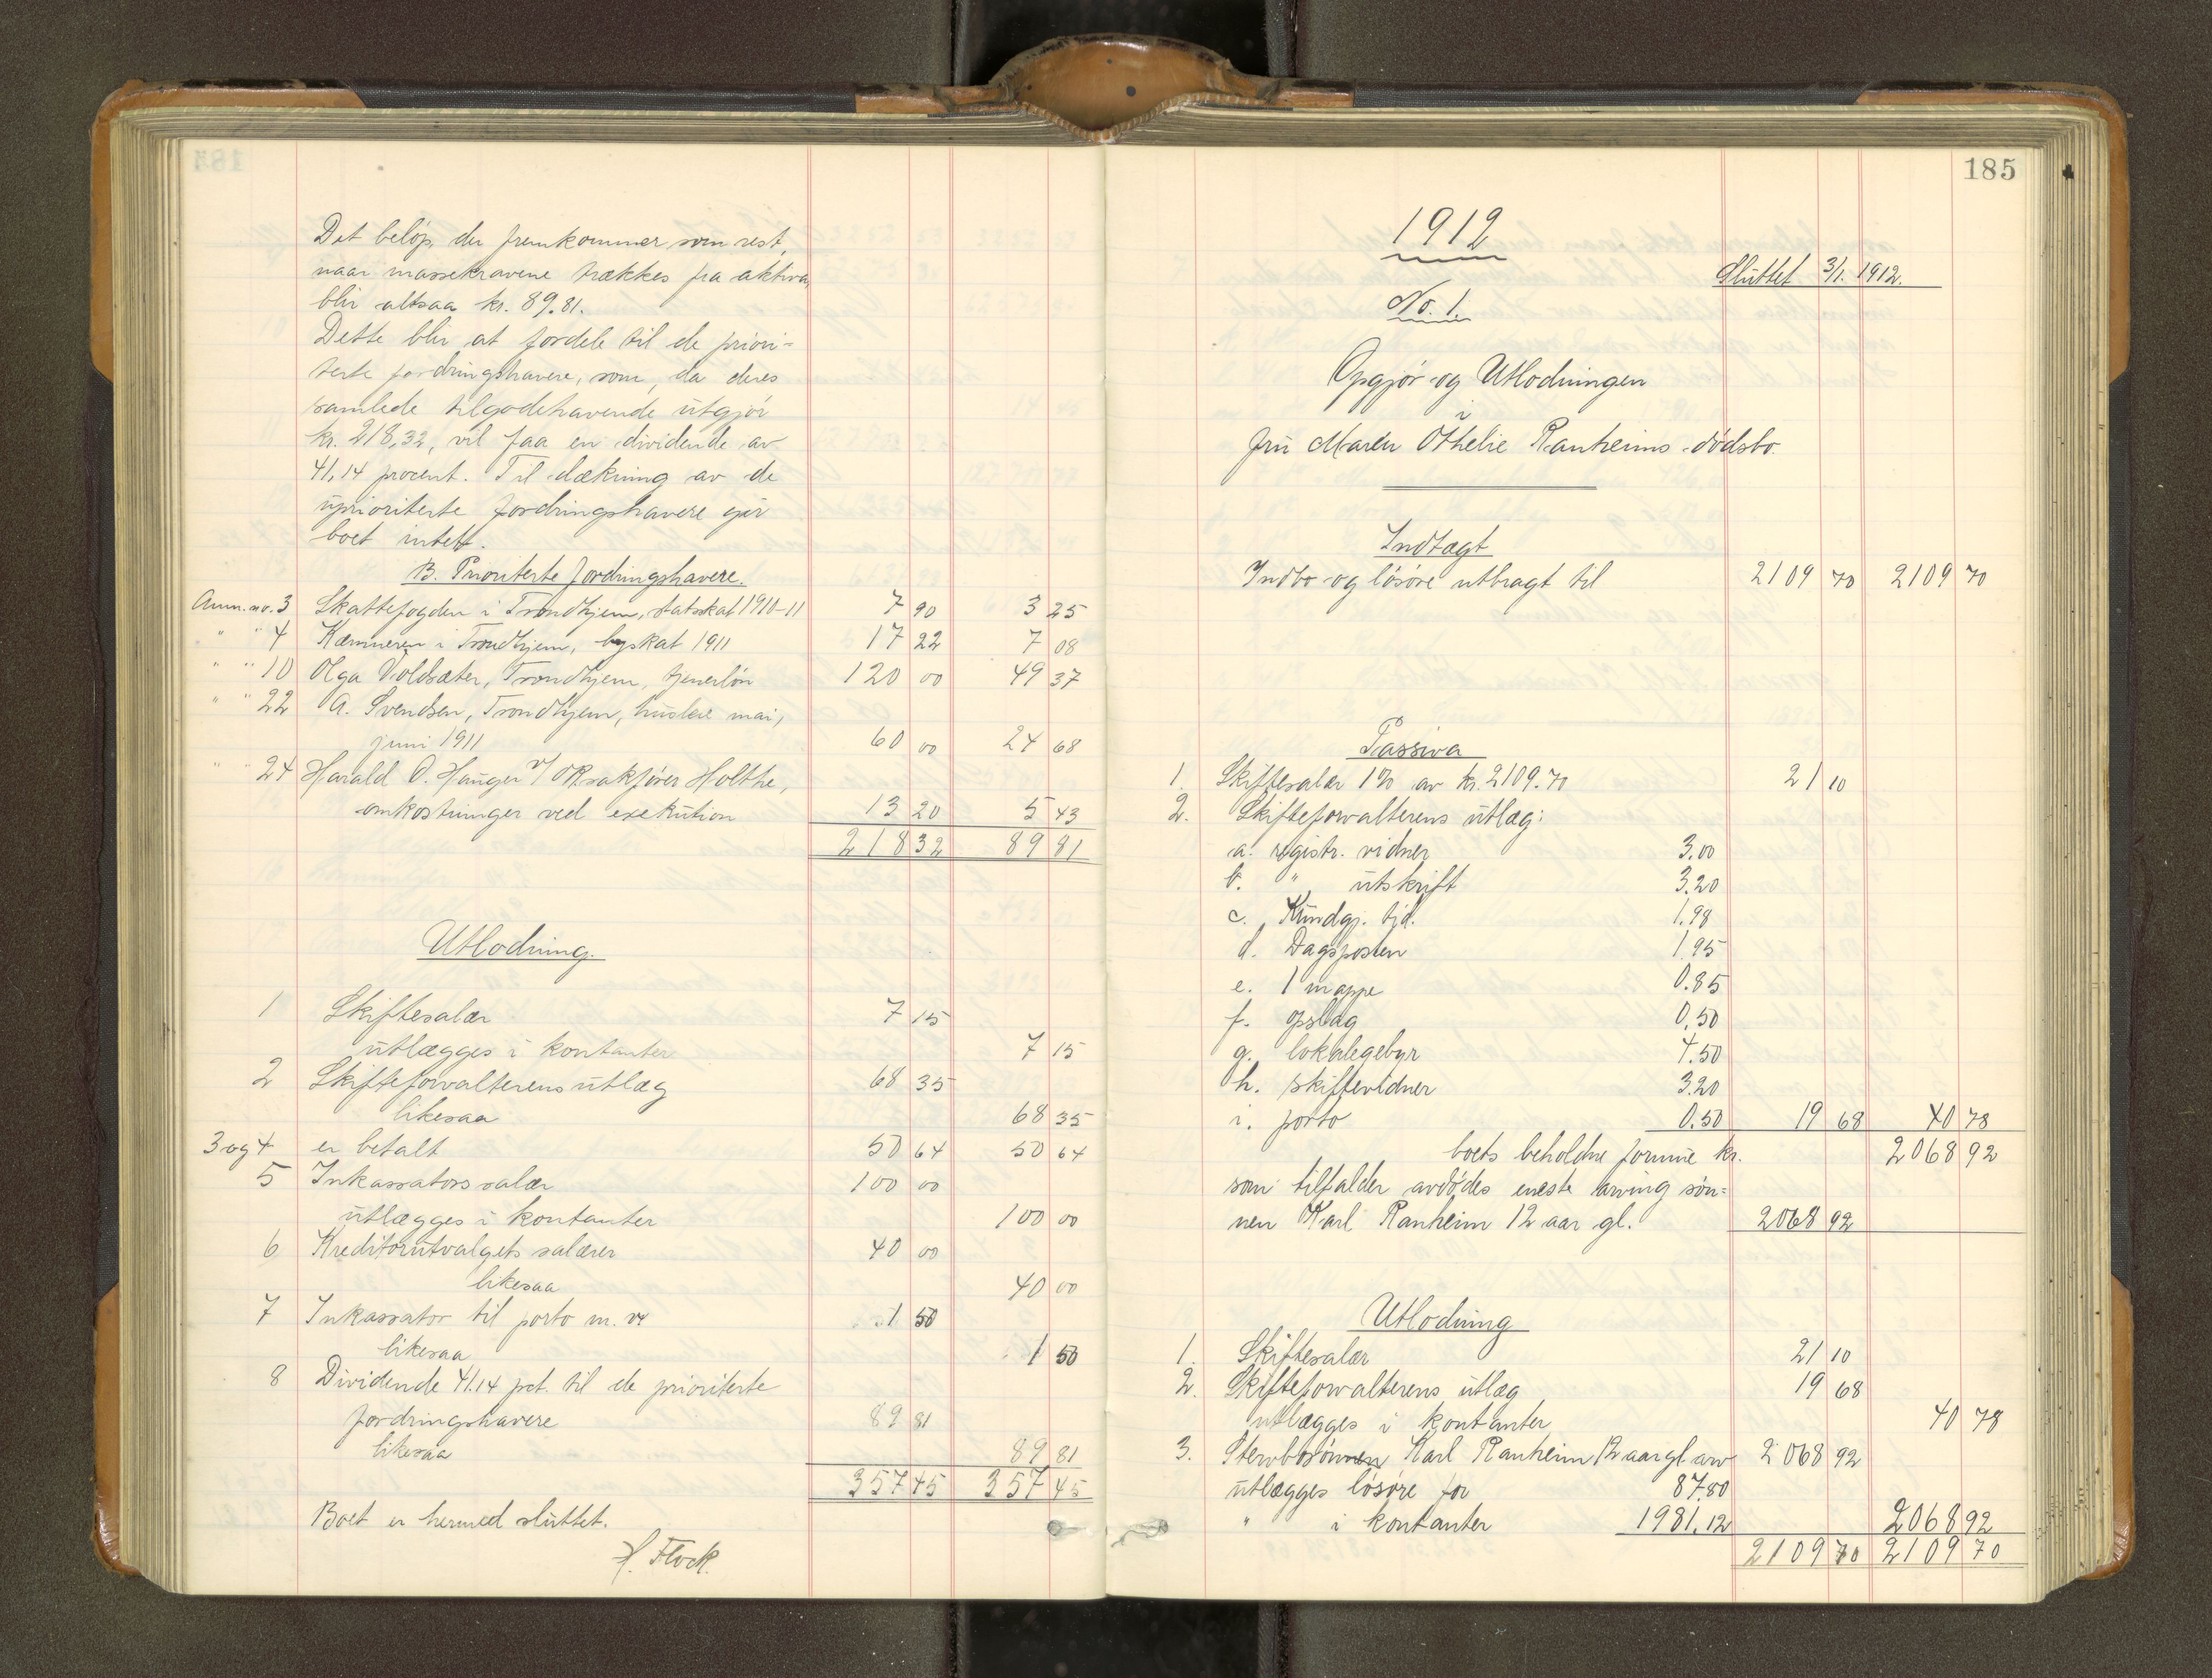 Det beløp, der fremkommer som rest,
naar massekravene trækkes fra aktiva,
blir altsaa kr. 89.81.
Dette blir at fordele til de priori-
terte fordringshavere, som, da deres
samlede tilgodehavende utgjør
kr. 218,32, vil faa en dividende av
41,14 procent. Til dækning av de
uprioriterte fordringshavere gir
boet intet.
B. Prioriterte fordringshavere.
Anm. nr. 3 Skattefogden i Trondhjem, statsskat 1910-11 7 90 3 25
" " 4 Kæmneren i Trondhjem, byskat 1911 17 22 7 08
" " 10 Olga Voldsæter, Trondhjem, tjenerløn 120 00 49 37
" " 22 A. Svendsen, Trondhjem, husleie mai,
juni 1911 60 00 24 68
" " 24 Harald O. Hauger v/ ORsakfører Holthe,
omkostninger ved exekution 13 20 5 43
218 32 89 81
Utlodning.
1 Skiftesalær 7 15
utlægges i kontanter 7 15
2 Skifteforvalterens utlæg 68 35
likesaa 68 35
3 og 4 er betalt 50 64 50 64
5 Inkassators salær 100 00
utlægges i kontanter 100 00
6 Kreditorutvalgets salærer 40 00
likesaa 40 00
7 Inkassator til porto m. v. 1 50
likesaa 1 50
8 Dividende 41.14 pct. til de prioriterte
fordringshavere 89 81
likesaa 89 81
357 45 357 45
Boet er hermed sluttet.
H. Flock.
185
1912
Sluttet 3/1. 1912.
No. 1.
Opgjør og Utlodningen
i
fru Maren Othelie Ranheims dødsbo.
Indtægt
Indbo og løsøre utbragt til 2109 70 2109 70
Passiva
1. Skiftesalær 1% av kr. 2109.70 21 10
2. Skifteforvalterens utlæg:
a. registr. vidner 3.00
b. " utskrift 3.20
c. Kundgj. tid. 1.98
d. Dagsposten 1.95
e. 1 mappe 0.85
f. opslag 0.50
g. lokalegebyr 4.50
h. skiftevidner 3.20
i. porto 0.50 19 68 40 78
boets beholdne formue kr. 2068 92
som tilfalder avdødes eneste arving søn-
nen Karl Ranheim 12 aar gl. 2068 92
Utlodning
1. Skiftesalær 21 10
2. Skifteforvalterens utlæg 19 68
utlægges i kontanter 40 78
3. Stervbosønnen Karl Ranheim 12 aar gl arv 2068 92
utlægges løsøre for 87.80
" i kontanter 1981.12 2068 92
2109 70 2109 70